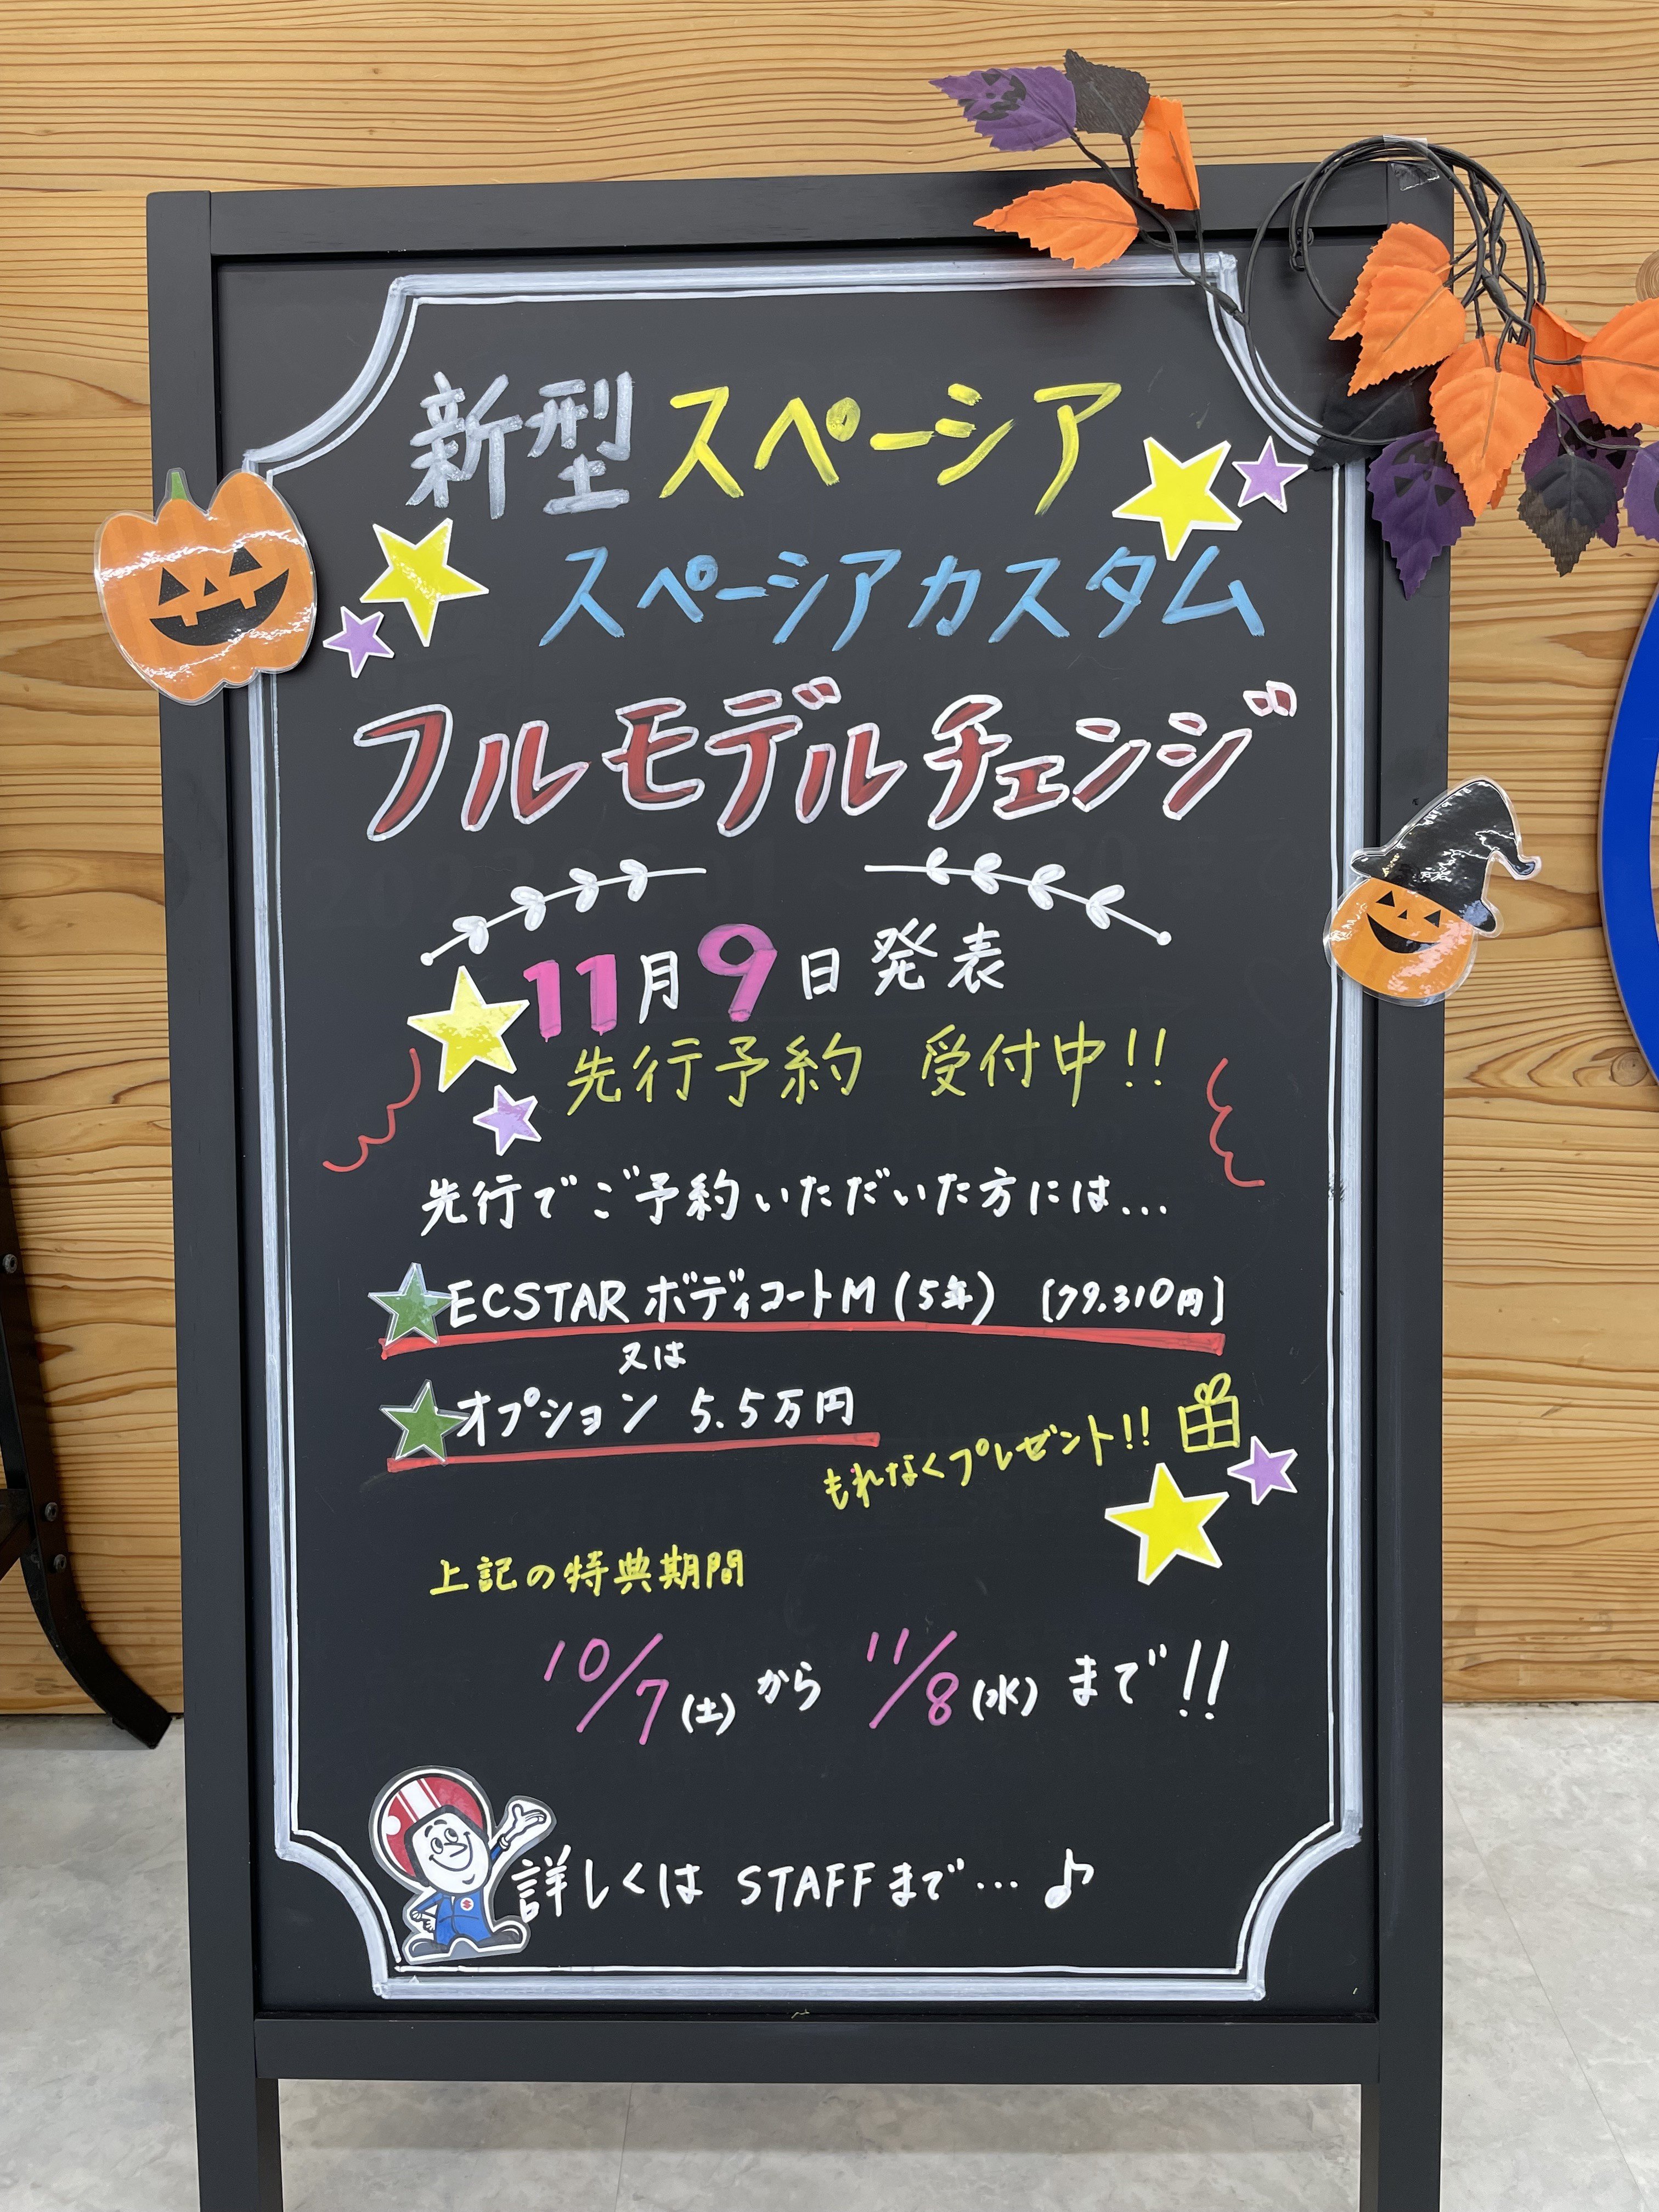 新型 スペーシア
スペーシアカスタム
フルモデルチェンジ
11月9日発表
先行予約 受付中!!
先行でご予約いただいた方には...
ECSTAR ボディコートM (5年) [79.310円]
又は
オプション 5.5万円
もれなくプレゼント!!
上記の特典期間
10/7(土)から 11/8(水)まで!!
詳しくは STAFFまで…♪